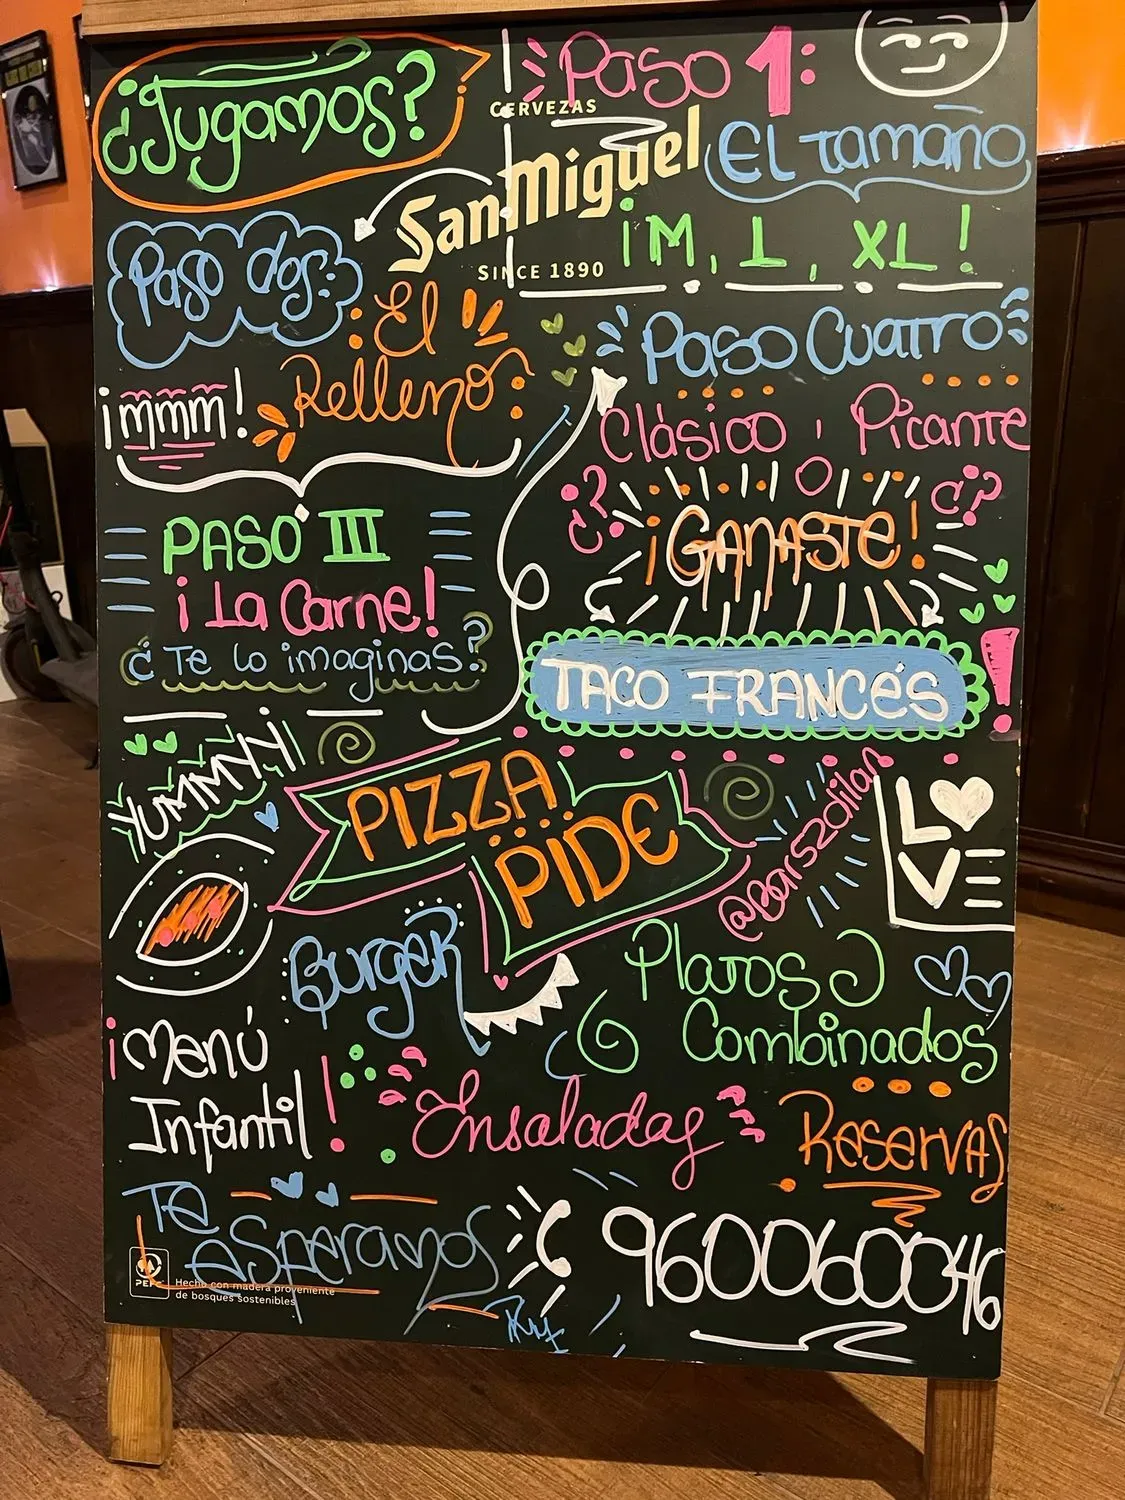 ¿Jugamos?
Paso 1:
CERVEZAS
San Miguel
SINCE 1890
El tamaño
¡M, L, XL!
Paso dos:
El
Relleno
¡mmm!
PASO III
¡La Carne!
¿Te lo imaginas?
Paso Cuatro
Clásico o Picante
¿? ¿?
¡GANASTE!
TACO FRANCÉS!
YUMMY
PIZZA
PIDE
@Barszdilan
LOVE
Burger
Platos
Combinados
¡Menú
Infantil!
Ensaladas
Reservas
Te
Esperamos
960060046
PEFC
Hecho con madera proveniente
de bosques sostenibles